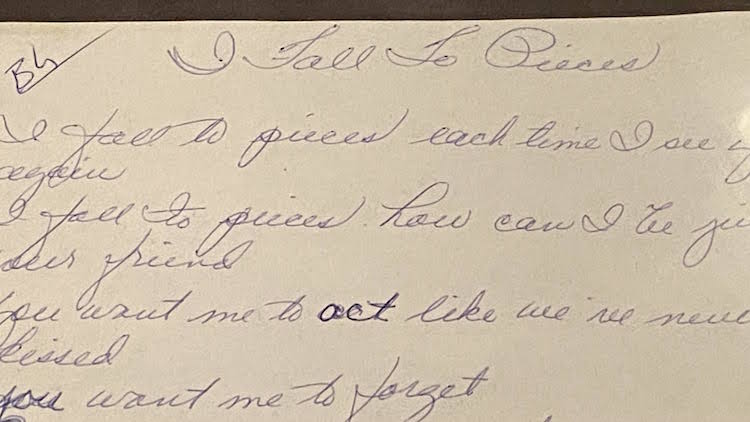 Bb
I Fall To Pieces
I fall to pieces each time I see y
again
I fall to pieces how can I be ju
our friend
you want me to act like we've neve
kissed
you want me to forget